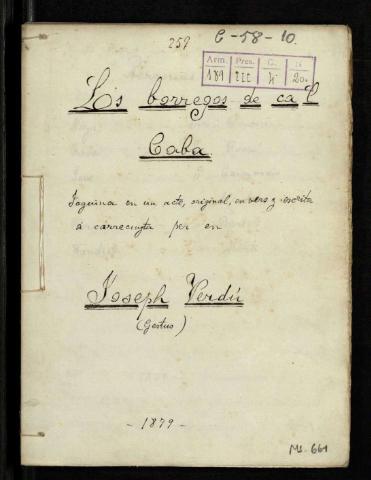 259
C-58-10.
Arm. Pres. C. N
189 III 4 20
Los borregos de ca'l
Caba
Joguina en un acte, original, en vers y escrita
á correcuyta per en
Joseph Verdú
(Gestus)
- 1879 -
Ms. 661